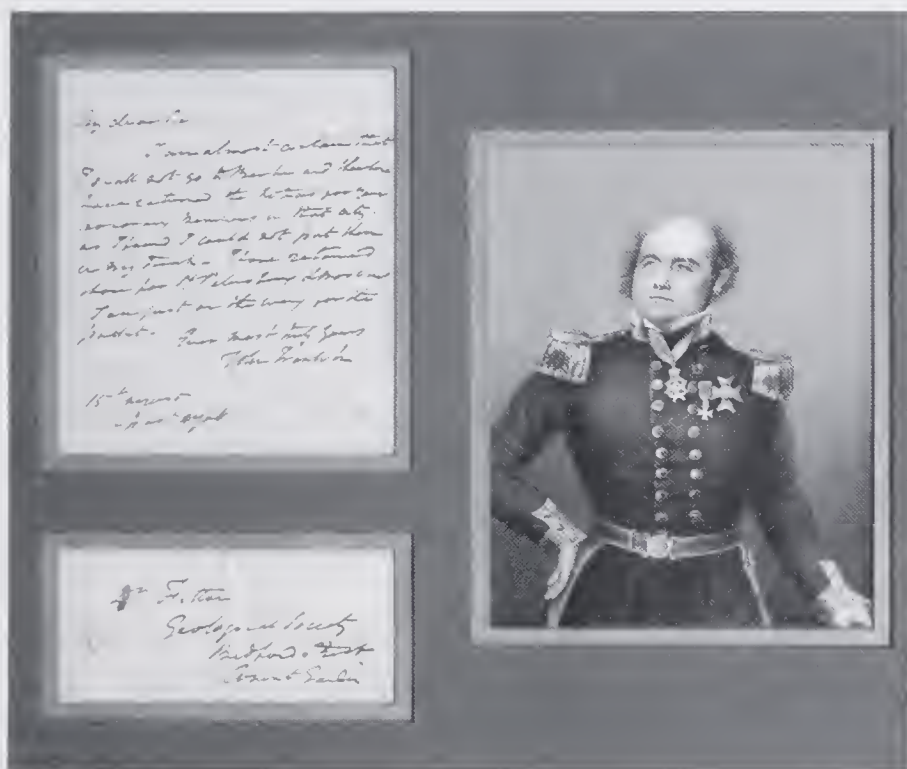 My dear Sir
I am almost certain that
I shall not go to Berlin and therefore
have returned the letters for your
in that city
as I found I could not put them
in my Trunk. I have returned
those for
I am just on the way for the
packet.
I am most truly yours
John Franklin
15th August
past Eight
Dr Fitton
Geological Society
Bedford Street
Covent Garden